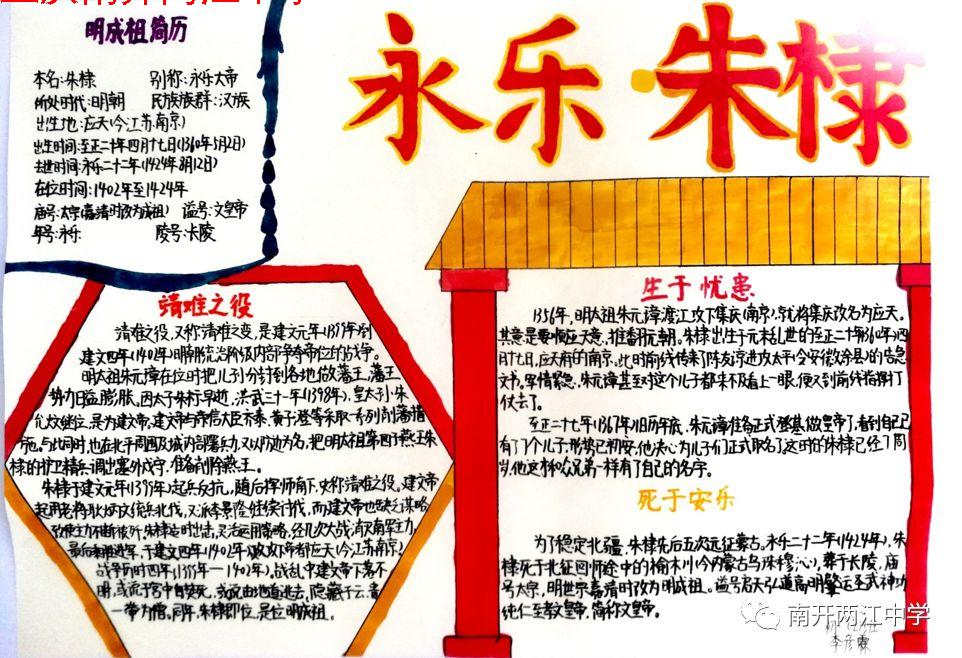 永乐·朱棣
明成祖简历
本名:朱棣 别称:永乐大帝
所处时代:明朝 民族族群:汉族
出生地:应天(今江苏南京)
出生时间:至正二十年四月十七日(1360年5月2日)
去世时间:永乐二十二年(1424年8月12日)
在位时间:1402年至1424年
庙号:太宗(嘉靖时改为成祖) 谥号:文皇帝
年号:永乐 陵号:长陵
靖难之役
靖难之役,又称靖难之变,是建文元年(1399年)到
建文四年(1402年)明朝统治阶级内部争夺帝位的战争。
明太祖朱元璋在位时把儿子分封到各地做藩王,藩王
势力日益膨胀。因太子朱标早逝,洪武三十一年(1398年),皇太孙朱
允炆继位,是为建文帝,建文帝与亲信大臣齐泰、黄子澄等采取一系列削藩措
施。与此同时,也在北平周围及城内部署兵力,又以防边为名,把明太祖第四子燕王朱
棣的护卫精兵调出塞外戍守,准备削除燕王。
朱棣于建文元年(1399年)起兵反抗,随后挥师南下,史称靖难之役。建文帝
起用老将耿炳文统兵北伐,又派李景隆继续讨伐,而建文帝也缺乏谋略,
致使主力不断被歼。朱棣适时出击,灵活运用策略,经几次大战消灭南军主力,
最后乘胜进军,于建文四年(1402年)攻下帝都应天(今江苏南京)
战争历时四年(1399年—1402年),战乱中建文帝下落不
明,或说于宫中自焚死,或说由地道逃去,隐藏于云、贵
一带为僧。同年,朱棣即位,是位明成祖。
生于忧患
1356年,明太祖朱元璋渡江攻下集庆(南京),就将集庆改名为应天。
其意是要顺应天意,推翻元朝。朱棣出生于元末乱世的至正二十年(1360年)四
月十七日,应天府的南京。此时前线传来了陈友谅进攻太平(今安徽当涂县)的告急
文书,军情紧急,朱元璋甚至对这个儿子都来不及看上一眼,便又到前线指挥打
仗去了。
至正二十七年(1367年)旧历年底,朱元璋准备正式登基做皇帝了,看到自己已
有了7个儿子,形势已初安,他决心为儿子们正式取名了,这时的朱棣已经7周
岁,他这才和众兄弟一样有了自己的名字。
死于安乐
为了稳定北疆,朱棣先后五次远征蒙古。永乐二十二年(1424年),朱
棣死于北征回师途中的榆木川(今内蒙古乌珠穆沁),葬于长陵,庙
号太宗,明世宗嘉靖时改为明成祖。谥号启天弘道高明肇运圣武神功
纯仁至孝文皇帝,简称文皇帝。
南开两江中学
李彦霖